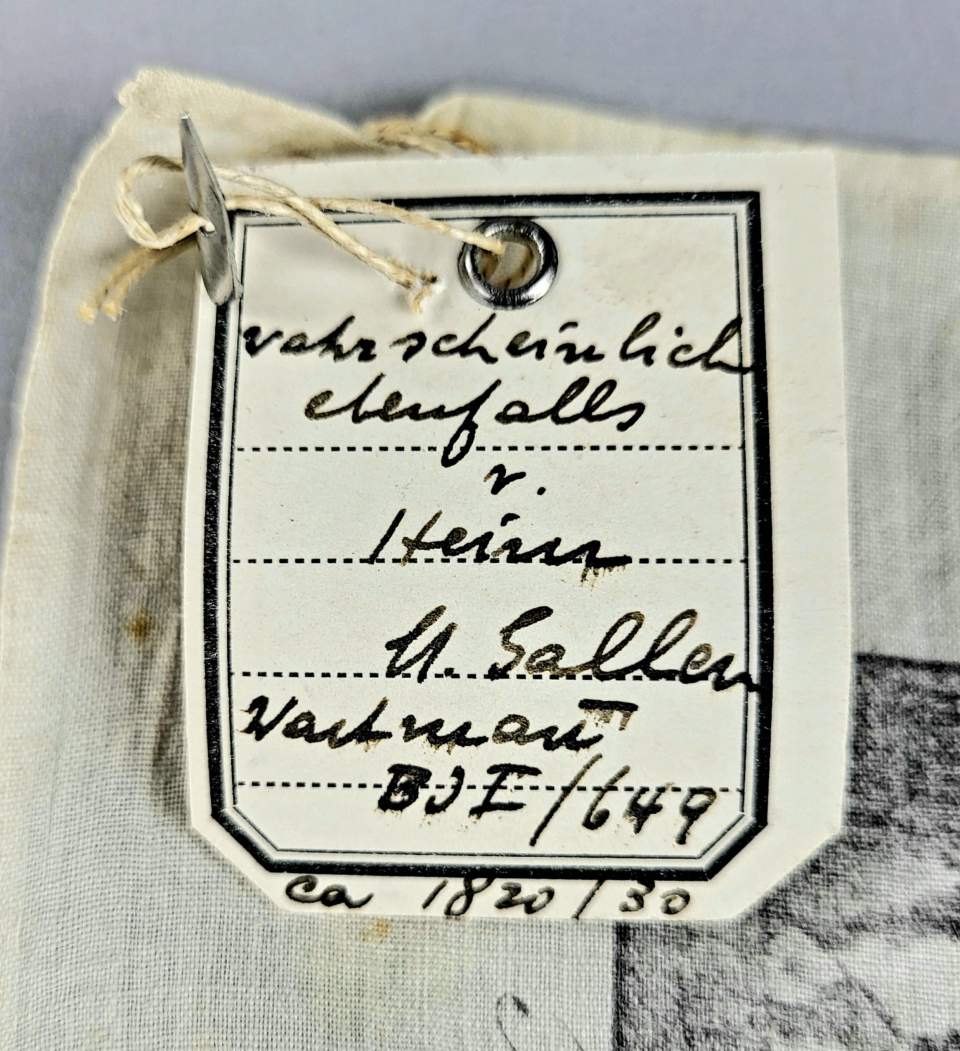 wahrscheinlich
ebenfalls
v.
Heim
St. Gallen
Wartmann
Bd I/649
ca 1820/30